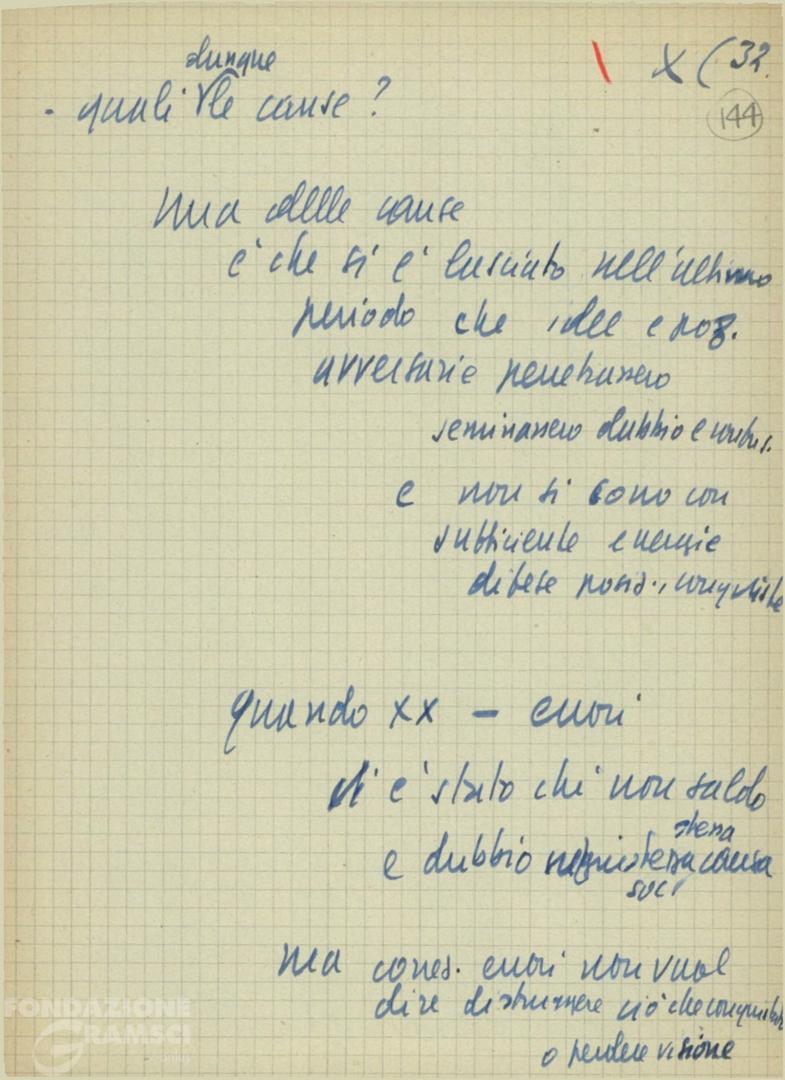 X (32.
144
dunque
- quali le cause?
una delle cause
è che si è lasciato nell'ultimo
periodo che idee e poz.
avversarie penetrassero
seminassero dubbio e confus.
e non si sono con
sufficiente energie
difese posiz., conquiste
quando XX - errori
vi è stato chi non saldo
e dubbio stessa causa
soc
ma corres. errori non vuol
dire distruggere ciò che conquistato
o perdere visione
FONDAZIONE
GRAMSCI